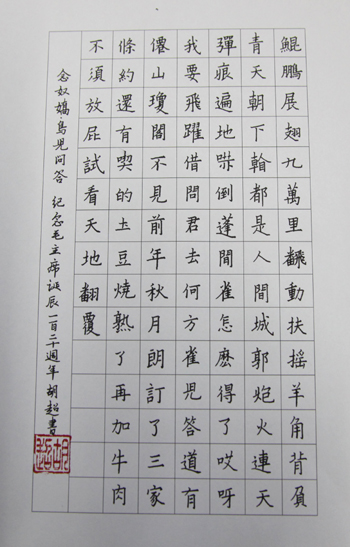 鯤鵬展翅九萬里飜動扶搖羊角背負
青天朝下翰都是人間城郭炮火連天
彈痕遍地嚇倒蓬間雀怎麽得了哎呀
我要飛躍借問君去何方雀兒答道有
僊山瓊閣不見前年秋月朗訂了三家
條約還有喫的土豆燒熟了再加牛肉
不須放屁試看天地翻覆
念奴嬌鳥兒問答 紀念毛主席誕辰一百二十週年胡超書
胡超